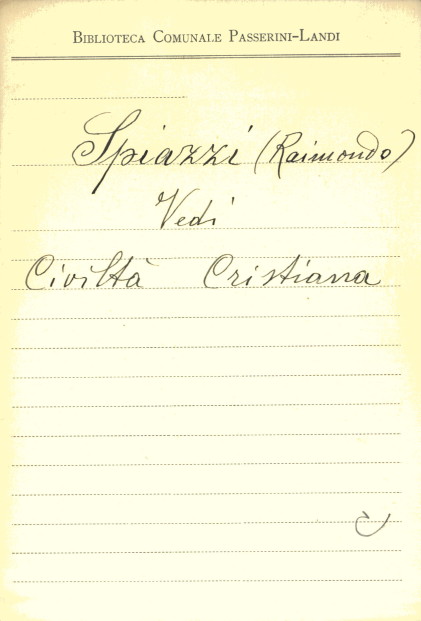 Biblioteca Comunale Passerini-Landi
Spiazzi (Raimondo)
Vedi
Civiltà Cristiana